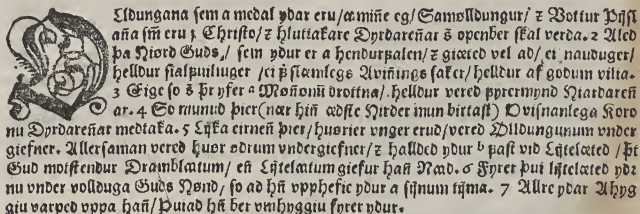 OLldungana sem a medal ydar eru/ aminne eg/ Samølldungur/ ꝛ Vottur Pijsl
anña sm̃ eru j Christo/ ꝛ hluttakare Dyrdareñar s̃ openber skal verda. 2 Aled
þa Hiørd Guds/ sem ydur er a hendurfalen/ ꝛ giæted vel ad/ ei nauduger/
helldur sialfuiliuger/ ei þ̃ skamlegs Aviñings saker/ helldur af godum vilia.
3 Eige so s̃ þr yfer ᵃ Møñonũ drottna/ helldur vered fyrermynd Hiardareñ
ar. 4 So munud þier (nær hiñ ædste Hirder mun birtast) Ovisnanlega Koro
nu Dyrdareñar medtaka. 5 Lijka eirneñ þier/ huørier vnger erud/ vered Ølldungunum vnder
giefner. Allersaman vered huør ødrum vndergiefner/ ꝛ hallded ydur ᵇ fast vid Lijtelæted/ þt
Gud motstendur Dramblætum/ eñ Lijtelætum giefur hañ Naad. 6 Fyrer þui lijtelæted ydz
nu vnder vollduga Guds Hønd/ so ad hñ vpphefie ydur a sijnum tijma. 7 Allre ydar Ahyg
giu varped vppa hañ/ Þuiad hñ ber vmhyggiu fyrer ydur.